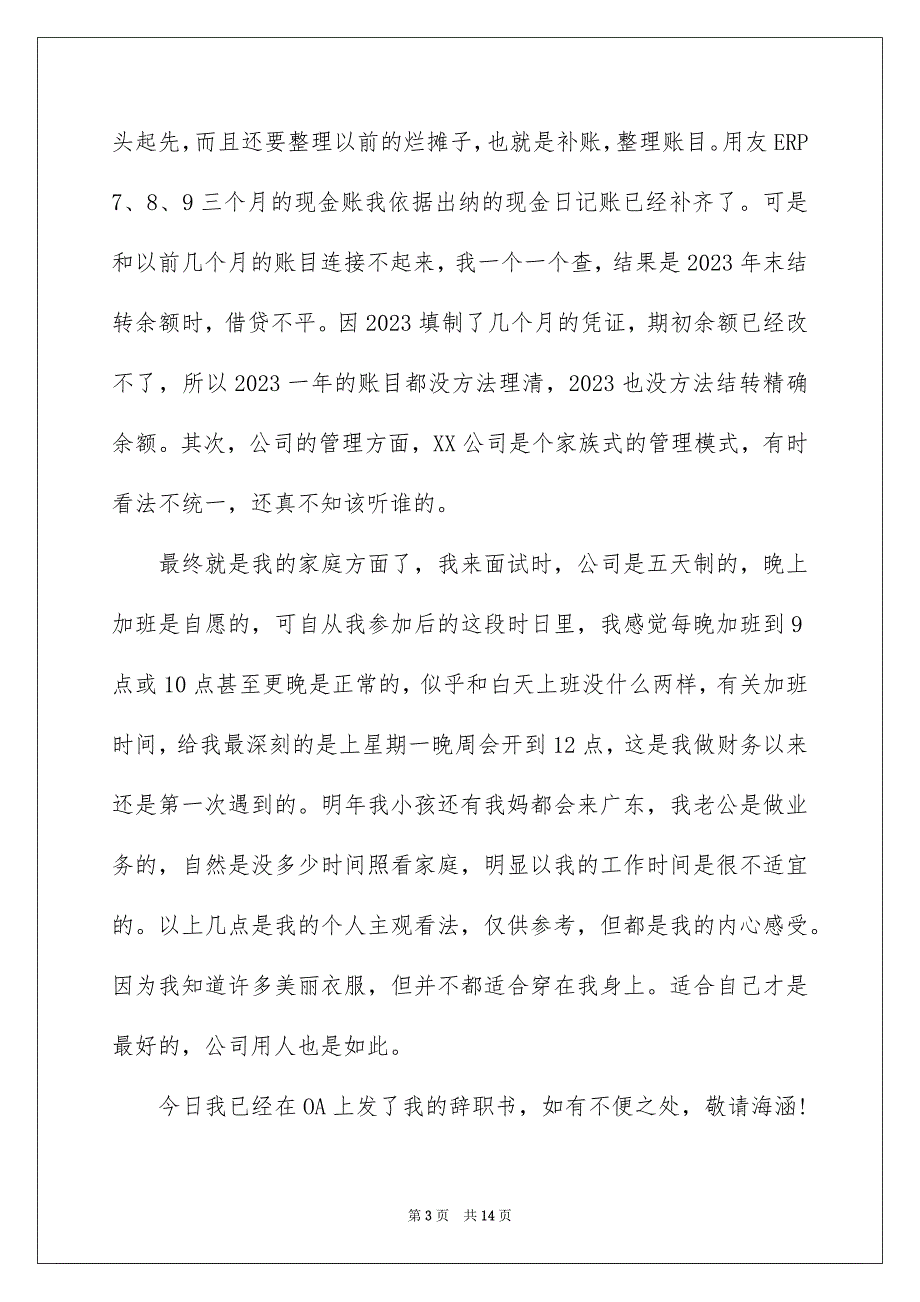 头起先，而且还要整理以前的烂摊子，也就是补账，整理账目。用友 ERP
7、8、9 三个月的现金账我依据出纳的现金日记账已经补齐了。可是
和以前几个月的账目连接不起来，我一个一个查，结果是 2023 年末结
转余额时，借贷不平。因 2023 填制了几个月的凭证，期初余额已经改
不了，所以 2023 一年的账目都没方法理清，2023 也没方法结转精确
余额。其次，公司的管理方面，XX 公司是个家族式的管理模式，有时
看法不统一，还真不知该听谁的。
最终就是我的家庭方面了，我来面试时，公司是五天制的，晚上
加班是自愿的，可自从我参加后的这段时日里，我感觉每晚加班到 9
点或 10 点甚至更晚是正常的，似乎和白天上班没什么两样，有关加班
时间，给我最深刻的是上星期一晚周会开到 12 点，这是我做财务以来
还是第一次遇到的。明年我小孩还有我妈都会来广东，我老公是做业
务的，自然是没多少时间照看家庭，明显以我的工作时间是很不适宜
的。以上几点是我的个人主观看法，仅供参考，但都是我的内心感受。
因为我知道许多美丽衣服，但并不都适合穿在我身上。适合自己才是
最好的，公司用人也是如此。
今日我已经在 OA 上发了我的辞职书，如有不便之处，敬请海涵!
第 3 页 共 14 页